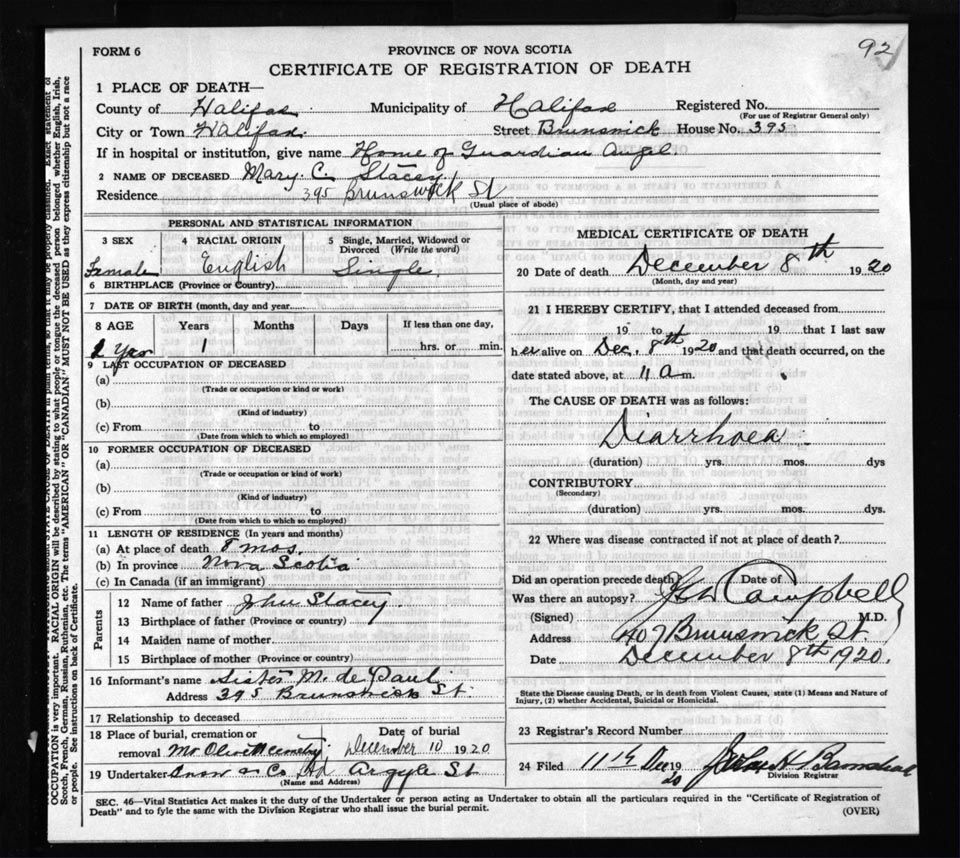 92
FORM 6
PROVINCE OF NOVA SCOTIA
CERTIFICATE OF REGISTRATION OF DEATH
1 PLACE OF DEATH—
County of Halifax Municipality of Halifax Registered No.
(For use of Registrar General only)
City or Town Halifax. Street Brunswick House No. 395
If in hospital or institution, give name Home of Guardian Angel
2 NAME OF DECEASED Mary. C. Stacey
Residence 395 Brunswick St
(Usual place of abode)
PERSONAL AND STATISTICAL INFORMATION
3 SEX 4 RACIAL ORIGIN 5 Single, Married, Widowed or Divorced (Write the word)
Female English Single.
6 BIRTHPLACE (Province or Country)
7 DATE OF BIRTH (month, day and year)
8 AGE Years Months Days If less than one day,
Yrs 1 hrs. or min.
9 LAST OCCUPATION OF DECEASED
(a)
(Trade or occupation or kind or work)
(b)
(Kind of industry)
(c) From to
(Date from which to which so employed)
10 FORMER OCCUPATION OF DECEASED
(a)
(Trade or occupation or kind of work)
(b)
(Kind of industry)
(c) From to
(Date from which to which so employed)
11 LENGTH OF RESIDENCE (In years and months)
(a) At place of death 8 mos.
(b) In province Nova Scotia
(c) In Canada (if an immigrant)
Parents
12 Name of father John Stacey.
13 Birthplace of father (Province or country)
14 Maiden name of mother
15 Birthplace of mother (Province or country)
16 Informant's name Sister M. de Paul
Address 395 Brunswick St.
17 Relationship to deceased
18 Place of burial, cremation or Date of burial
removal Mt Olivet Cemetery December 10 1920
19 Undertaker Snow & Co Ltd Argyle St
(Name and Address)
MEDICAL CERTIFICATE OF DEATH
20 Date of death December 8th 1920
(Month, day and year)
21 I HEREBY CERTIFY, that I attended deceased from
19 to 19 that I last saw
h er alive on Dec. 8th 1920 and that death occurred, on the
date stated above, at 11 a m.
The CAUSE OF DEATH was as follows:
Diarrhoea
(duration) yrs. mos. dys
CONTRIBUTORY
(Secondary)
(duration) yrs. mos. dys.
22 Where was disease contracted if not at place of death?
Did an operation precede death? Date of
Was there an autopsy?
(Signed) Campbell M.D.
Address 407 Brunswick St.
Date December 8th, 1920.
State the Disease causing Death, or in death from Violent Causes, state (1) Means and Nature of
Injury, (2) whether Accidental, Suicidal or Homicidal.
23 Registrar's Record Number
24 Filed 11th Dec 1920
Division Registrar
SEC. 46—Vital Statistics Act makes it the duty of the Undertaker or person acting as Undertaker to obtain all the particulars required in the "Certificate of Registration of
Death" and to fyle the same with the Division Registrar who shall issue the burial permit. (OVER)
OCCUPATION is very important. RACIAL ORIGIN will be described by stating to what people or tongue the deceased person belonged whether English, Irish,
Scotch, French, German, Russian, Ruthenian, etc. The terms "AMERICAN" OR "CANADIAN" MUST NOT BE USED as they express citizenship but not a race
or people. See instructions on back of Certificate.